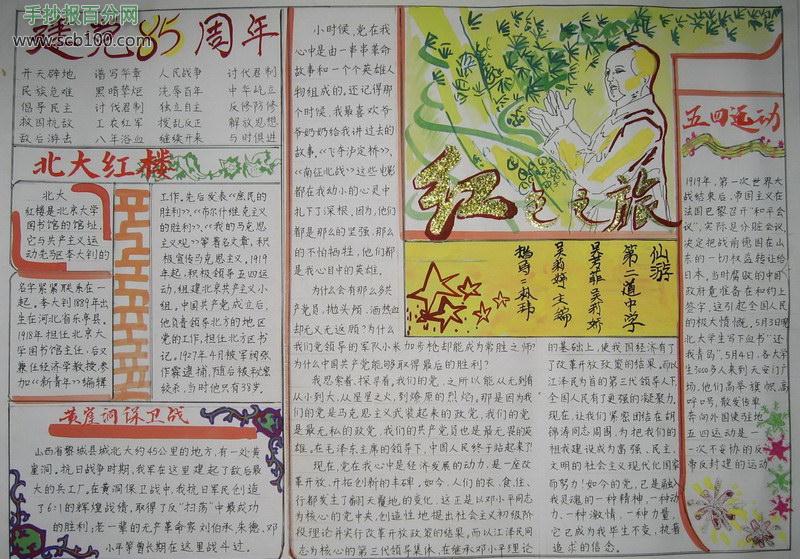 手抄报百分网
www.scb100.com
建党85周年
开天辟地 谱写华章 人民战争 讨伐君制
民族危难 黑暗禁炬 洗辱百年 中华屹立
倡导民主 讨伐君制 独立自主 反修防修
救国抗敌 工农红军 拨乱反正 解放思想
敌后游击 八年浴血 继续开来 与时俱进
北大红楼
北大
红楼是北京大学
图书馆的馆址,
它与共产主义运
动先驱李大钊的
名字紧紧联系在一
起。李大钊1889年出
生在河北省乐亭县。
1918年担任北京大
学图书馆主任,后又
兼任经济学教授,参
加《新青年》编辑
工作。先后发表《庶民的
胜利》、《布尔什维克主义
的胜利》、《我的马克思
主义观》等著名文章,积
极宣传马克思主义。1919
年起,积极领导五四运
动,组建北京共产主义小
组。中国共产党成立后,
他负责领导北方的地区
党的工作,担任北方区书
记。1927年4月被军阀张
作霖逮捕,随后被秘密
绞杀,当时他只有38岁。
黄崖洞保卫战
山西省黎城县城北大约45公里的地方,有一处黄
崖洞,抗日战争时期,我军在这里建起了敌后最
大的兵工厂。在黄洞保卫战中,我抗日军民创造
了6:1的辉煌战绩,取得了反“扫荡”中最成功
的胜利;老一辈的无产革命家刘伯承、朱德、邓
小平等曾长期在这里战斗过。
小时候,党在我
心中是由一串串革命
故事和一个个英雄人
物组成的,还记得那
个时候,我最喜欢爷
爷奶奶给我讲过去的
故事。《飞夺泸定桥》、
《南征北战》这些电影
都在我幼小的心灵中
扎下了深根,因为,他们
都是那么的坚强,那么
的不怕牺牲,他们都
是我心目中的英雄。
为什么会有那么多共
产党员,抛头颅、洒热血
却无义无返顾?为什么
我们党领导的军队小米加步枪却能成为常胜之师?
为什么中国共产党能够取得最后的胜利?
我思索着,探寻着,我们的党,之所以能从无到有
从小到大,从星星之火,到燎原的烈焰,那是因为我
们的党是马克思主义武装起来的政党,我们的党
是最无私的政党,我们的共产党员也是最无畏的英
雄。在毛泽东主席的领导下,中国人民终于站起来了!
现在,党在我心中是经济发展的动力,是一座改
革开放、开拓创新的丰碑,如今,人们的衣、食、住、
行都发生了翻天覆地的变化,这正是以邓小平同志
为核心的党中央,创造性地提出社会主义初级阶
段理论并实行改革开放政策的结果,而以江泽民同
志为核心的第三代领导集体,在继承邓小平理论
红色之旅
仙游
第二道中学
吴莉婷 主编
的基础上,使我国经济有了
了改革开放政策的结果,而以
江泽民为首的第三代领导人下,
全国人民有了更强的凝聚力。
现在,让我们紧密团结在胡
锦涛同志周围,为把我们的
祖我建设成为富强、民主、
文明的社会主义现代化国家
而努力!如今的党,已是融入
我灵魂的一种精神,一种动
力,一种激情,一种力量,
它已成为我毕生不变、执着
追求的信念。
五四运动
1919年,第一次世界大
战结束后,帝国主义在
法国巴黎召开“和平会
议”,实际是分赃会议,
决定把战前德国在山
东的一切权益转让给
日本。当时腐败的中国
政府竟准备在和约上
签字,这引起全国人民
的极大愤慨。5月3日晚
北大学生写下血书“还
我青岛”。5月4日,各大学
生3000多人来到天安门广
场,他们高举旗帜,高
呼口号,散发传单,
奔向外国使驻地
五四运动是一
一次不妥协的反
帝反封建的运动